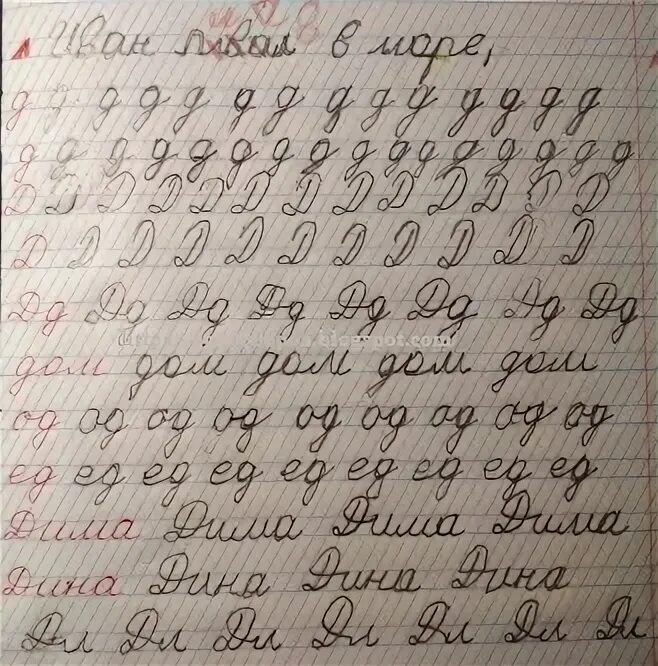 Иван в море,
д д д д д д д д д д д д д д
д д д д д д д д д д д д д д д д
Д Д Д Д Д Д Д Д Д Д Д Д Д
Д Д Д Д Д Д Д Д Д Д Д
Дд Дд Дд Дд Дд Дд Дд Дд
дом дом дом дом дом
од од од од од од од од од
ед ед ед ед ед ед ед ед ед
Дима Дима Дима Дима
Дина Дина Дина Дина
Дл Дл Дл Дл Дл Дл Дл